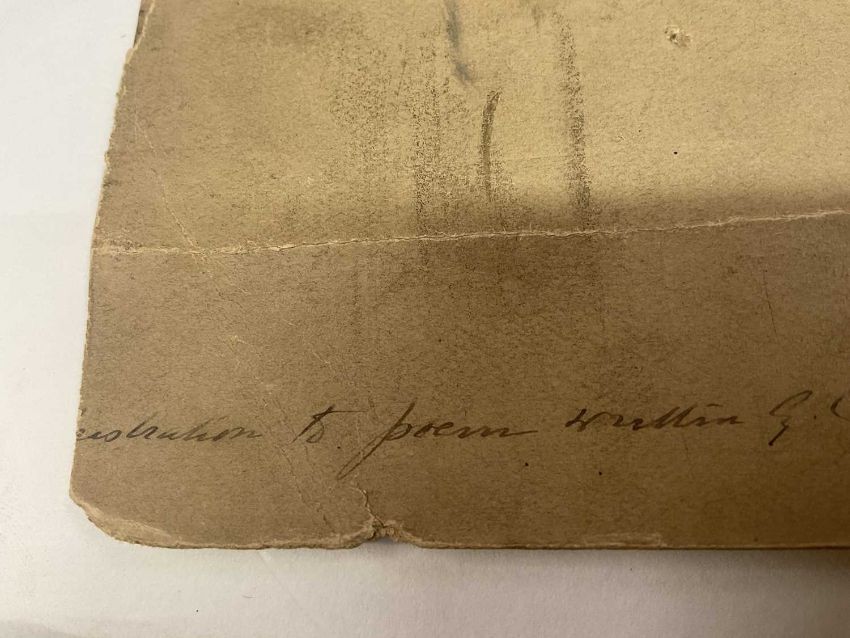 ustration to poem written G.